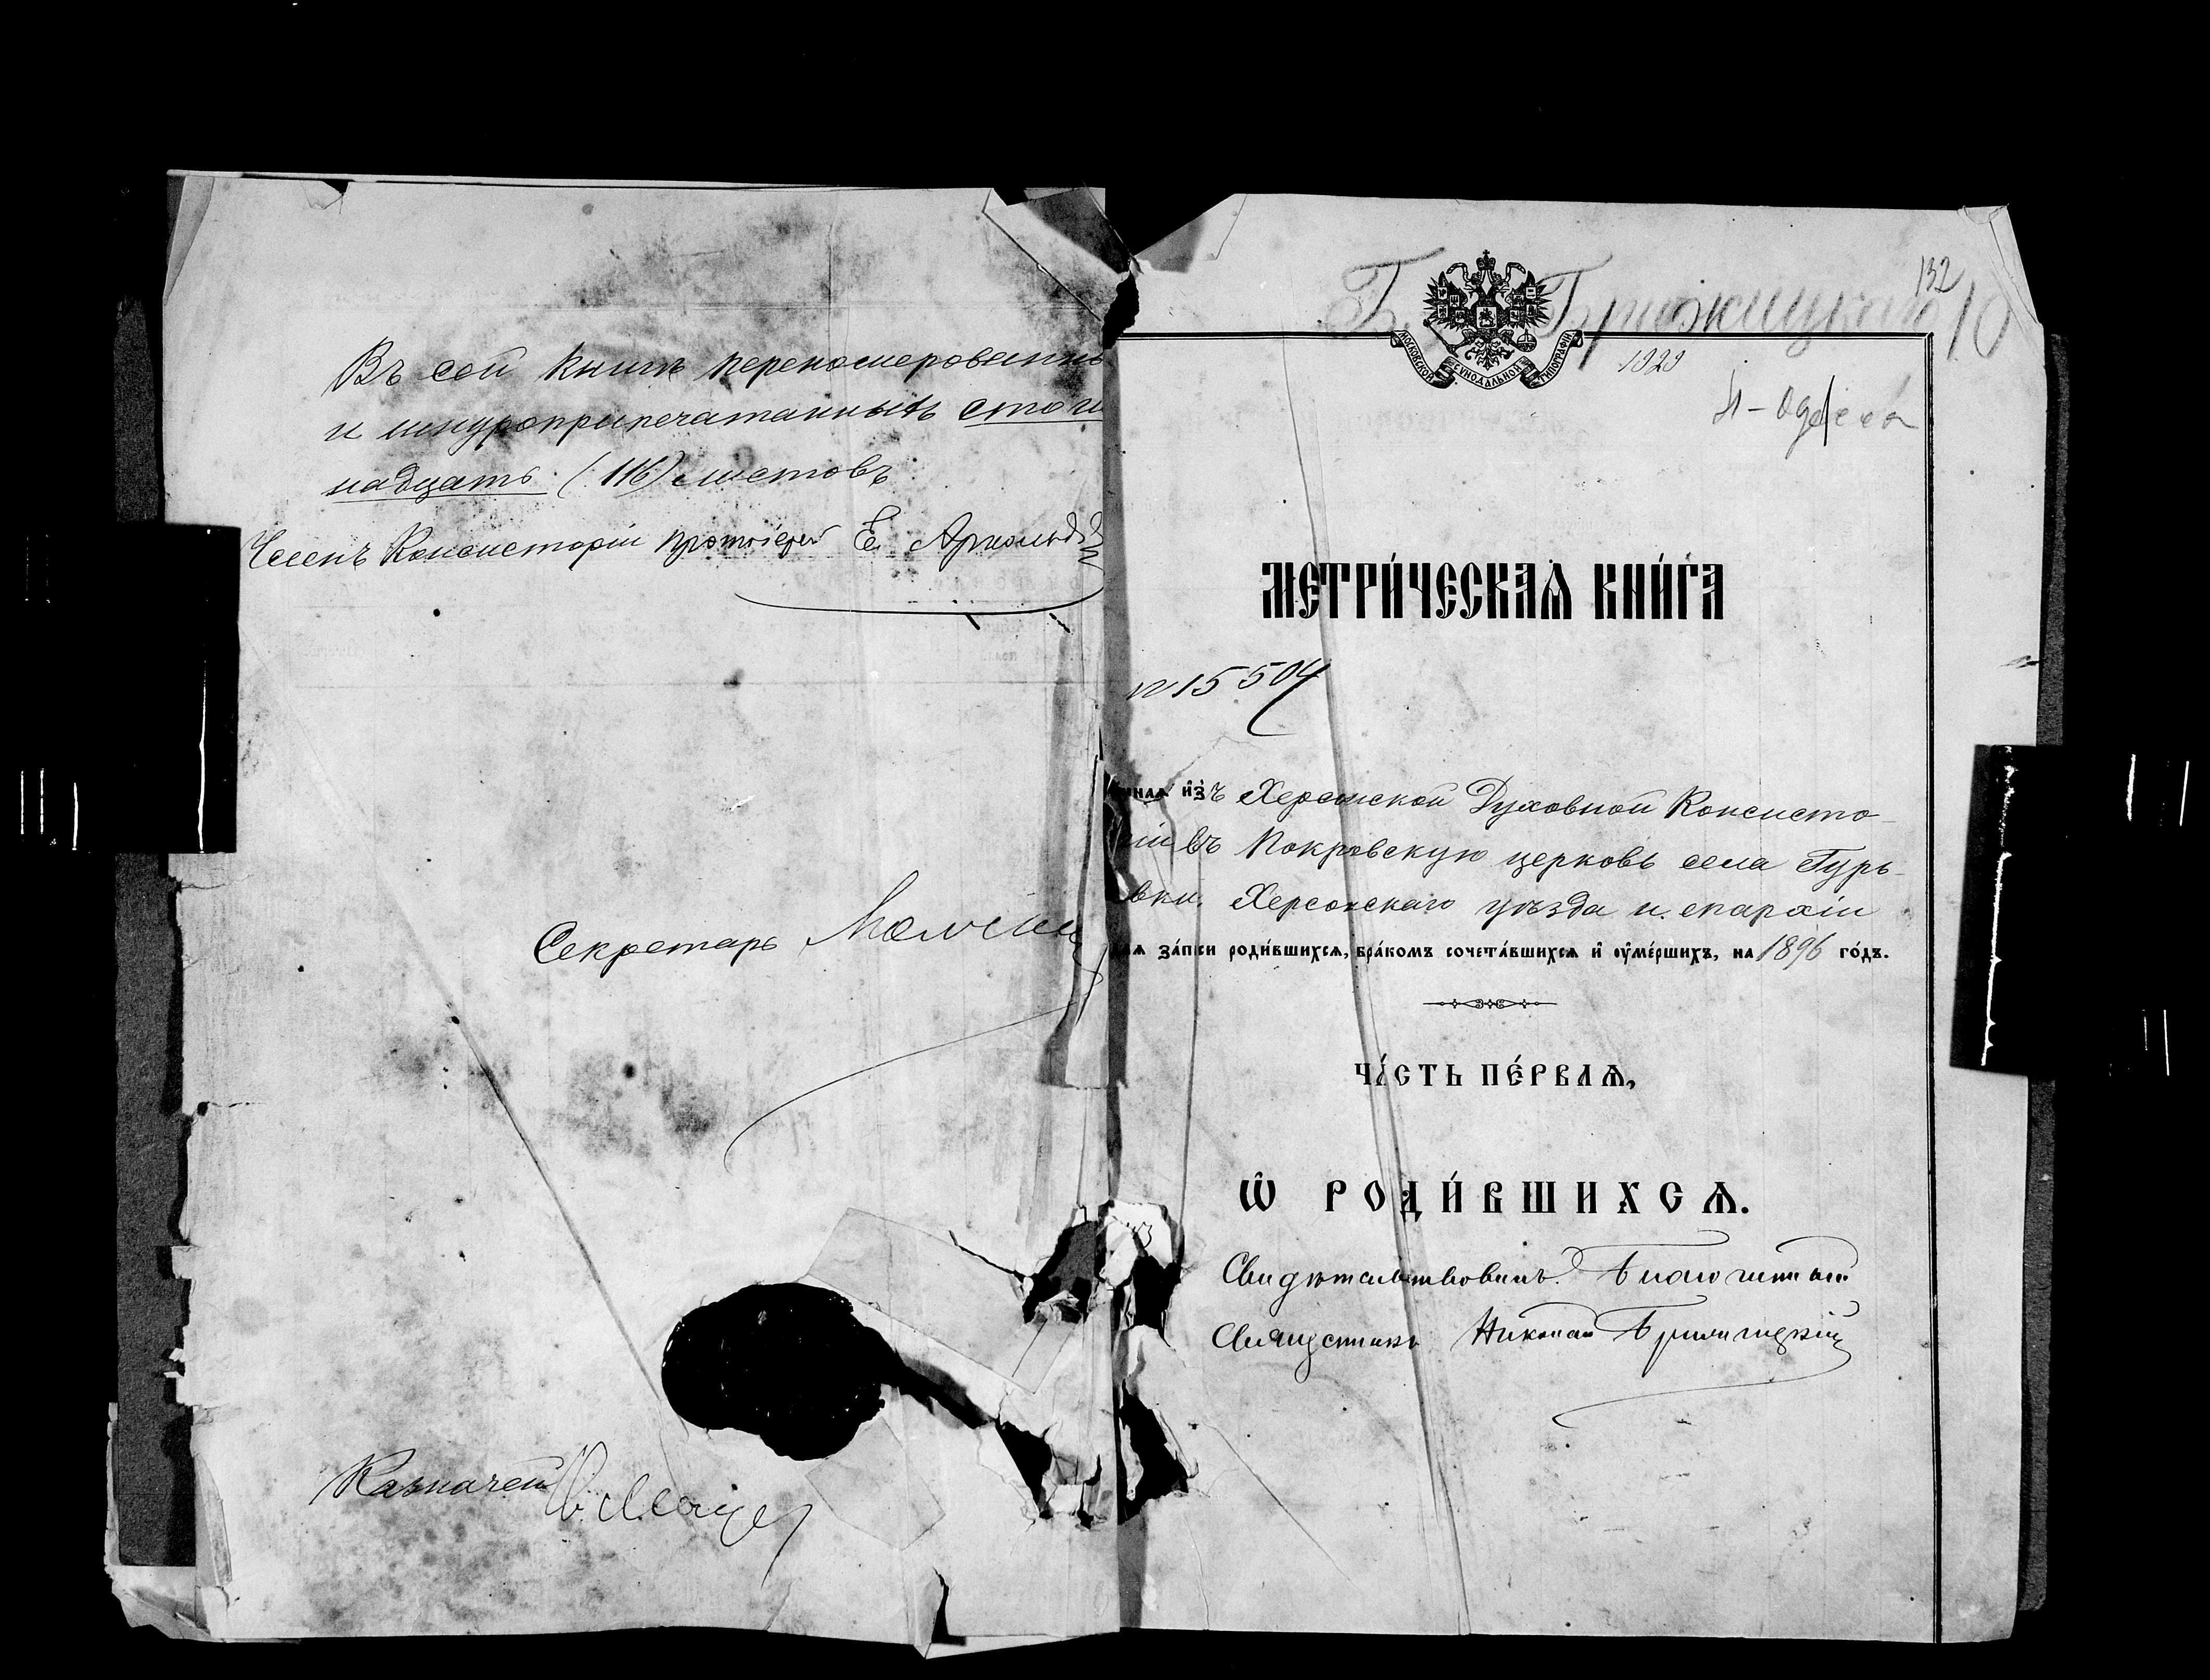 Въ сей книгѣ перенумерованныхъ
и шнуропрпечатанныхъ сто
надцать (116) листовъ
Членъ Консисторіи протоіерей Е. Арнольд
Секретарь
Казначей
132
10
МОСКОВСКОЙ СѴНОДАЛЬНОЙ ТИПОГРАФІИ
1929
Н-Одесса
МЕТРИ́ЧЕСКАѦ КНИ́ГА
№ 15504
и҆зъ Херсонской Духовной Консисто-
ріи въ Покровскую церковь села Гурь-
евки Херсонскаго уѣзда и епархіи
для за́писи роди́вшихсѧ, бра́комъ сочета́вшихсѧ и҆ ᲂу҆ме́ршихъ, на 1896 го́дъ.
ЧА́СТЬ ПЕ́РВАѦ,
Ѡ҆ РОДИ́ВШИХСѦ.
Свидѣтельствовалъ. Благочинный
Священникъ Николай Бряжицкій